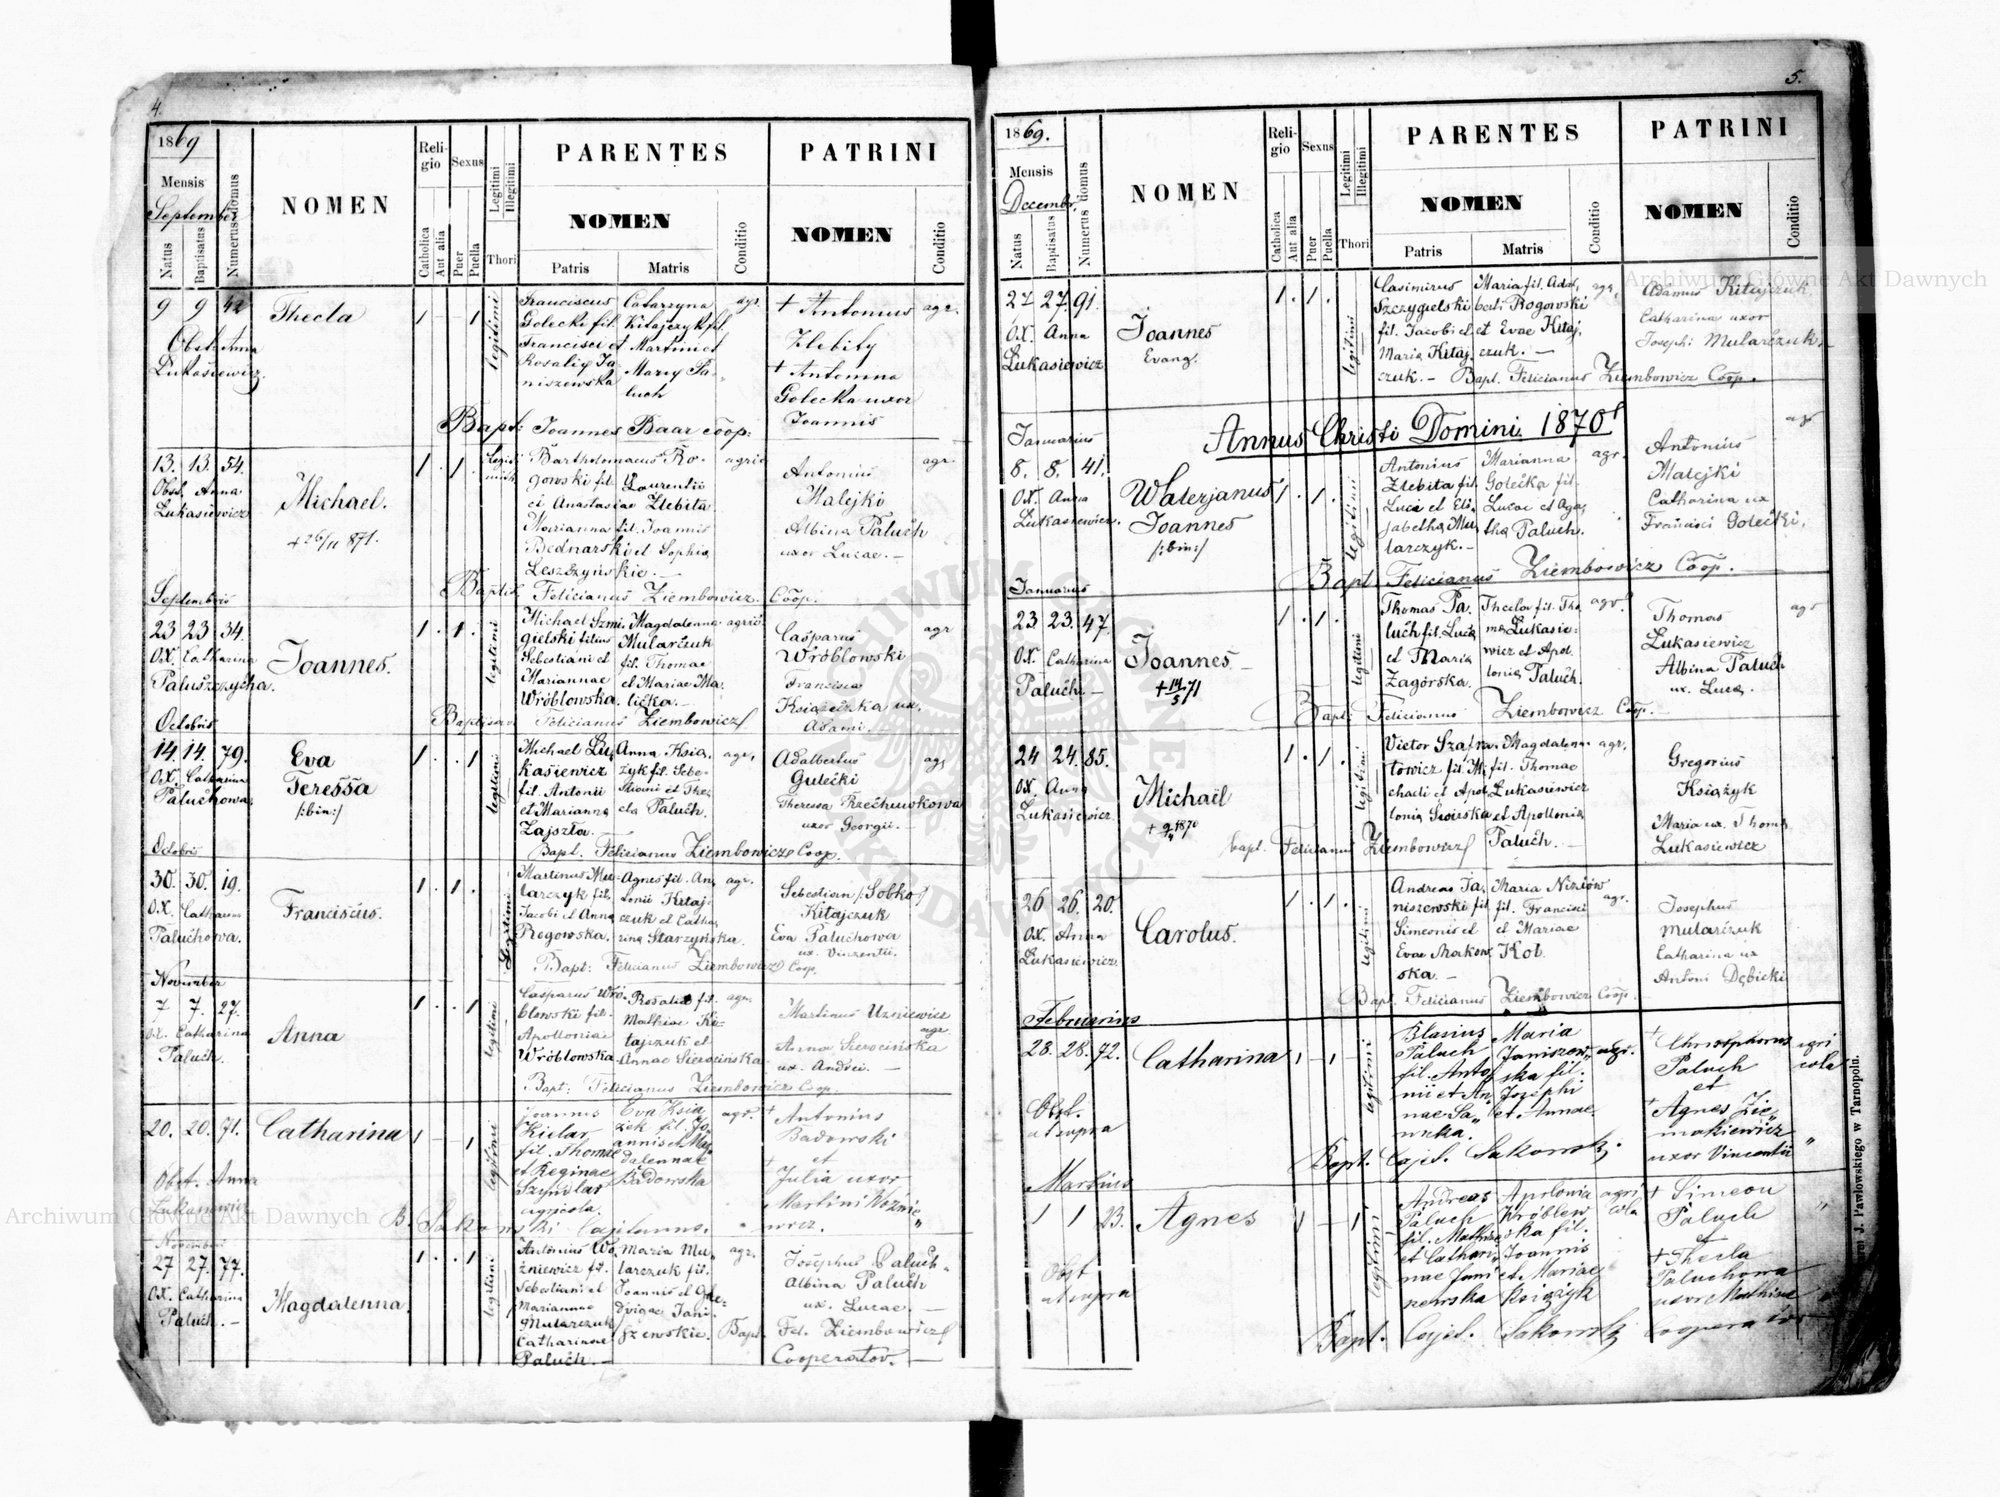 4.
1869
Mensis
September
Natus
Baptisatus
Numerus domus
NOMEN
Religio
Catholica
Aut alia
Sexus
Puer
Puella
Legitimi
Illegitimi
Thori
PARENTES
NOMEN
Patris
Matris
Conditio
PATRINI
NOMEN
Conditio
9 9 42
Obst. Anna
Lukasiewicz
Thecla
1 – – 1
legitimi
Franciscus
Golecki fil.
Francisci et
Rosaliy Ja
niszewska
Catarzyna
Kitajczyk fil.
Martini et
Mary Pa-
luch
agr.
+ Antonius
Zlebity
+ Antonina
Golecka uxor
Joannis
agr.
Bapt: Joannes Baar coop:
13. 13. 54.
Obst. Anna
Lukasiewicz
Michael.
+ 26/11 871.
1 . 1 .
Bartholomaeus Ro-
gowski fil. Laurentii
et Anastasiae Zlebita
Marianna fil. Joannis
Bednarski et Sophia
Leszczyńskie. —
agric
Antonius
Malejki
Albina Paluch
uxor Lucae. —
agr.
Bapt: Felicianus Ziembowicz. Coop.
Septembris
23 23 34.
OX. Catharina
Paluszczycha.
Joannes.
1 . 1 .
legitimi
Michael Szmi-
gielski filius
Sebestiani et
Mariannae
Wróblowska.
Magdalenna
Mularczuk
fil. Thomae
et Mariae Ma-
licka. —
agric
Casparus
Wróblowski
Francisca
Książeczka ux.
Adami.
agr
Felicianus Ziembowicz
Octobris
14. 14. 79.
OX. Catharina
Paluchowa
Eva
Teressa
/:bin:/
1 . . 1
legitimi
Michael Lu-
kasiewicz
fil. Antonii
et Marianna
Zajszta.
Anna Ksia-
żyk fil. Sebe-
stiani et The-
cla Paluch.
agr,
Adalbertus
Gulecki
Theressa Rzechuwkowa
uxor Georgii. —
agr
Bapt. Felicianus Ziembowicz Coop.
Octobris
30. 30. 19.
OX. Catharina
Paluchowa.
Franciscus.
1 . 1 .
Legitimi
Martinus Mu-
larczyk fil.
Jacobi et Anna
Rogowska.
Agnes fil. An-
tonii Kitaj-
czuk et Catha-
rina Starzyńska.
agr.
Sebestian /:Sobko/
Kitajczuk
Eva Paluchowa
ux. Vinzentii.
Bapt: Felicianus Ziembowicz Coop.
November
7 7. 27.
OX. Catharina
Paluch.
Anna
1 . . 1
legitimi
Casparus Wró-
blowski fil.
Apolloniae
Wróblowska
Rosalia fil.
Mathiae Ki-
tajczuk et
Annae Sierocińska
agr.
Martinus Uzniewicz
agr
Anna Sierocińska
ux. Andrei. —
Bapt: Felicianus Ziembowicz Coop.
20. 20. 71.
Obst. Anna
Lukasiewicz
Catharina
1 – – 1
legitimi
Joannes
Kielar
fil. Thomae
et Reginae
Szyndlar
agricola.
Eva Ksią
żek fil. Jo-
annis et Mag
dalennae
Badowska
agr.
+ Antonius
Badowski
et
+ Julia uxor
Martini Woznie
wicz.
B. Sakowski Cajetanus.
Novembris
27 27. 77.
OX. Catharina
Paluch. —
Magdalenna.
1 . . 1
legitimi
Antonius Wo-
źniewicz fil.
Sebestiani et
Mariannae
Mularczuk
Catharinae
Paluch. —
Maria Mu-
larczuk fil.
Joannis et He-
dvigae Jani-
szewskie.
agr.
Josephus Paluch.
Albina Paluch
ux. Lucae. —
Bapt. Fel. Ziembowicz
Cooperator. —
5.
1869.
Mensis
Decembr.
Natus
Baptisatus
Numerus domus
NOMEN
Religio
Catholica
Aut alia
Sexus
Puer
Puella
Legitimi
Illegitimi
Thori
PARENTES
NOMEN
Patris
Matris
Conditio
PATRINI
NOMEN
Conditio
27 27. 91.
OX. Anna
Lukasiewicz
Joannes
Evang.
1 . 1 .
legitimi
Casimirus
Szczygielski
fil. Jacobi et
Maria Kitaj-
czuk. —
Maria fil. Adal-
berti Rogowski
et Evae Kitaj-
czuk. —
agr.
Adamus Kitajczuk
Catharina uxor
Josephi Mularczuk. —
Bapt. Felicianus Ziembowicz Coop.
Annus Christi Domini 1870
Januarius
8. 8. 41.
OX. Anna
Lukasiewicz.
Walerjanus
Joannes
/:bin:/
1 . 1 .
legitimi
Antonius
Zlebita fil.
Luca et Eli-
jabetha Mu-
larczyk. —
Marianna
Golecka fil.
Lucae et Aga-
tha Paluch.
agr.
Antonius
Malejki
Catharina ux
Francisci Golecki.
agr
Bapt. Felicianus Ziembowicz Coop.
Januarius
23 23. 47.
OX. Catharina
Paluch. —
Joannes —
+ 14/5 71
1 . 1 .
legitimi
Thomas Pa-
luch fil. Luca
et Maria
Zagórska.
Thecla fil. Tho-
ma Lukasie-
wicz et Apol-
lonia Paluch.
agr.
Thomas
Lukasiewicz
Albina Paluch
ux. Luca.
agr
Bapt: Felicianus Ziembowicz Coop. —
24 24. 85.
OX. Anna
Lukasiewicz
Michaël
1 . 1 .
legitimi
Victor Szafra-
towicz fil. Mi-
chaeli et Apol-
lonia
Magdalena
fil. Thomae
Lukasiewicz
et Apollonia
Paluch. —
agr.
Gregorius
Książyk
Maria ux. Thoma
Lukasiewicz
bapt. Felicianus Ziembowicz
26 26. 20.
OX. Anna
Lukasiewicz.
Carolus.
1 . 1 .
legitimi
Andreas Ja-
niszewski fil
Simeonis et
Evae Makow-
ska. —
Maria Niziów
fil. Francisci
et Mariae
Kot.
agr.
Josephus
Mularczuk
Catharina ux
Antoni Dębicki
Bapt. Felicianus Ziembowicz Coop.
Februarius
28. 28. 72.
Obst.
ut supra
Catharina
1 – 1 –
legitimi
Blasius
Paluch
fil. Anto-
nii et An-
nae Sa-
wicka.
Maria
Janiszew-
ska fil.
Josephi
et Annae
agr.
+ Christophorus
Paluch
et
+ Agnes Zie-
makiewicz
uxor Vincentii
agri
cola
"
Bapt. Cajet. Sakowski.
Martius
1 1 23.
Obst
ut supra
Agnes
1 – 1
legitimi
Andreas
Paluch
fil. Mathiae
et Cathari-
nae Jani-
szewska
Apolonia
Wróblew
ska fil.
Joannis
et Mariae
Książyk
agri
cola
+ Simeon
Paluch
et
+ Thecla
Paluchowa
uxor Mathiae
"
Bapt. Cajet. Sakowski Cooperator
J. Pawłowskiego w Tarnopolu.
Archiwum Główne Akt Dawnych
Archiwum Główne Akt Dawnych
ARCHIWUM GŁÓWNE AKT DAWNYCH